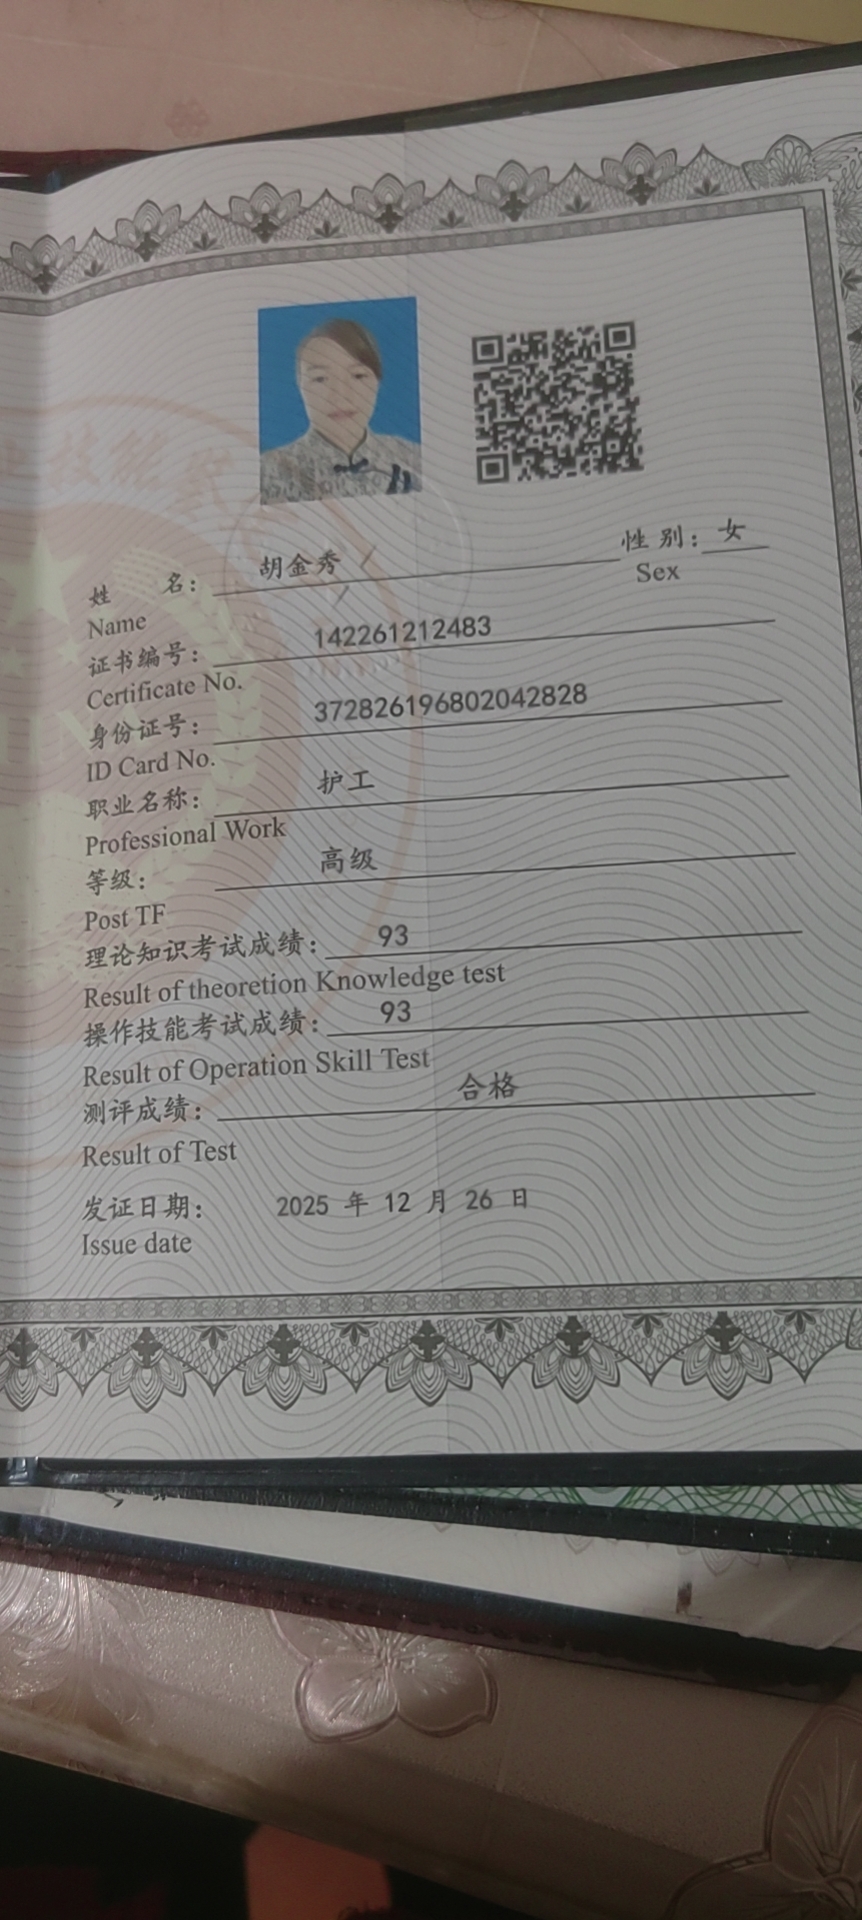 业技能鉴
胡金秀 性 别： 女
姓 名：
Name Sex
142261212483
证书编号：
Certificate No.
372826196802042828
身份证号：
ID Card No.
护工
职业名称：
Professional Work
高级
等级：
Post TF
理论知识考试成绩： 93
Result of theoretion Knowledge test
操作技能考试成绩： 93
Result of Operation Skill Test
合格
测评成绩：
Result of Test
发证日期： 2025 年 12 月 26 日
Issue date